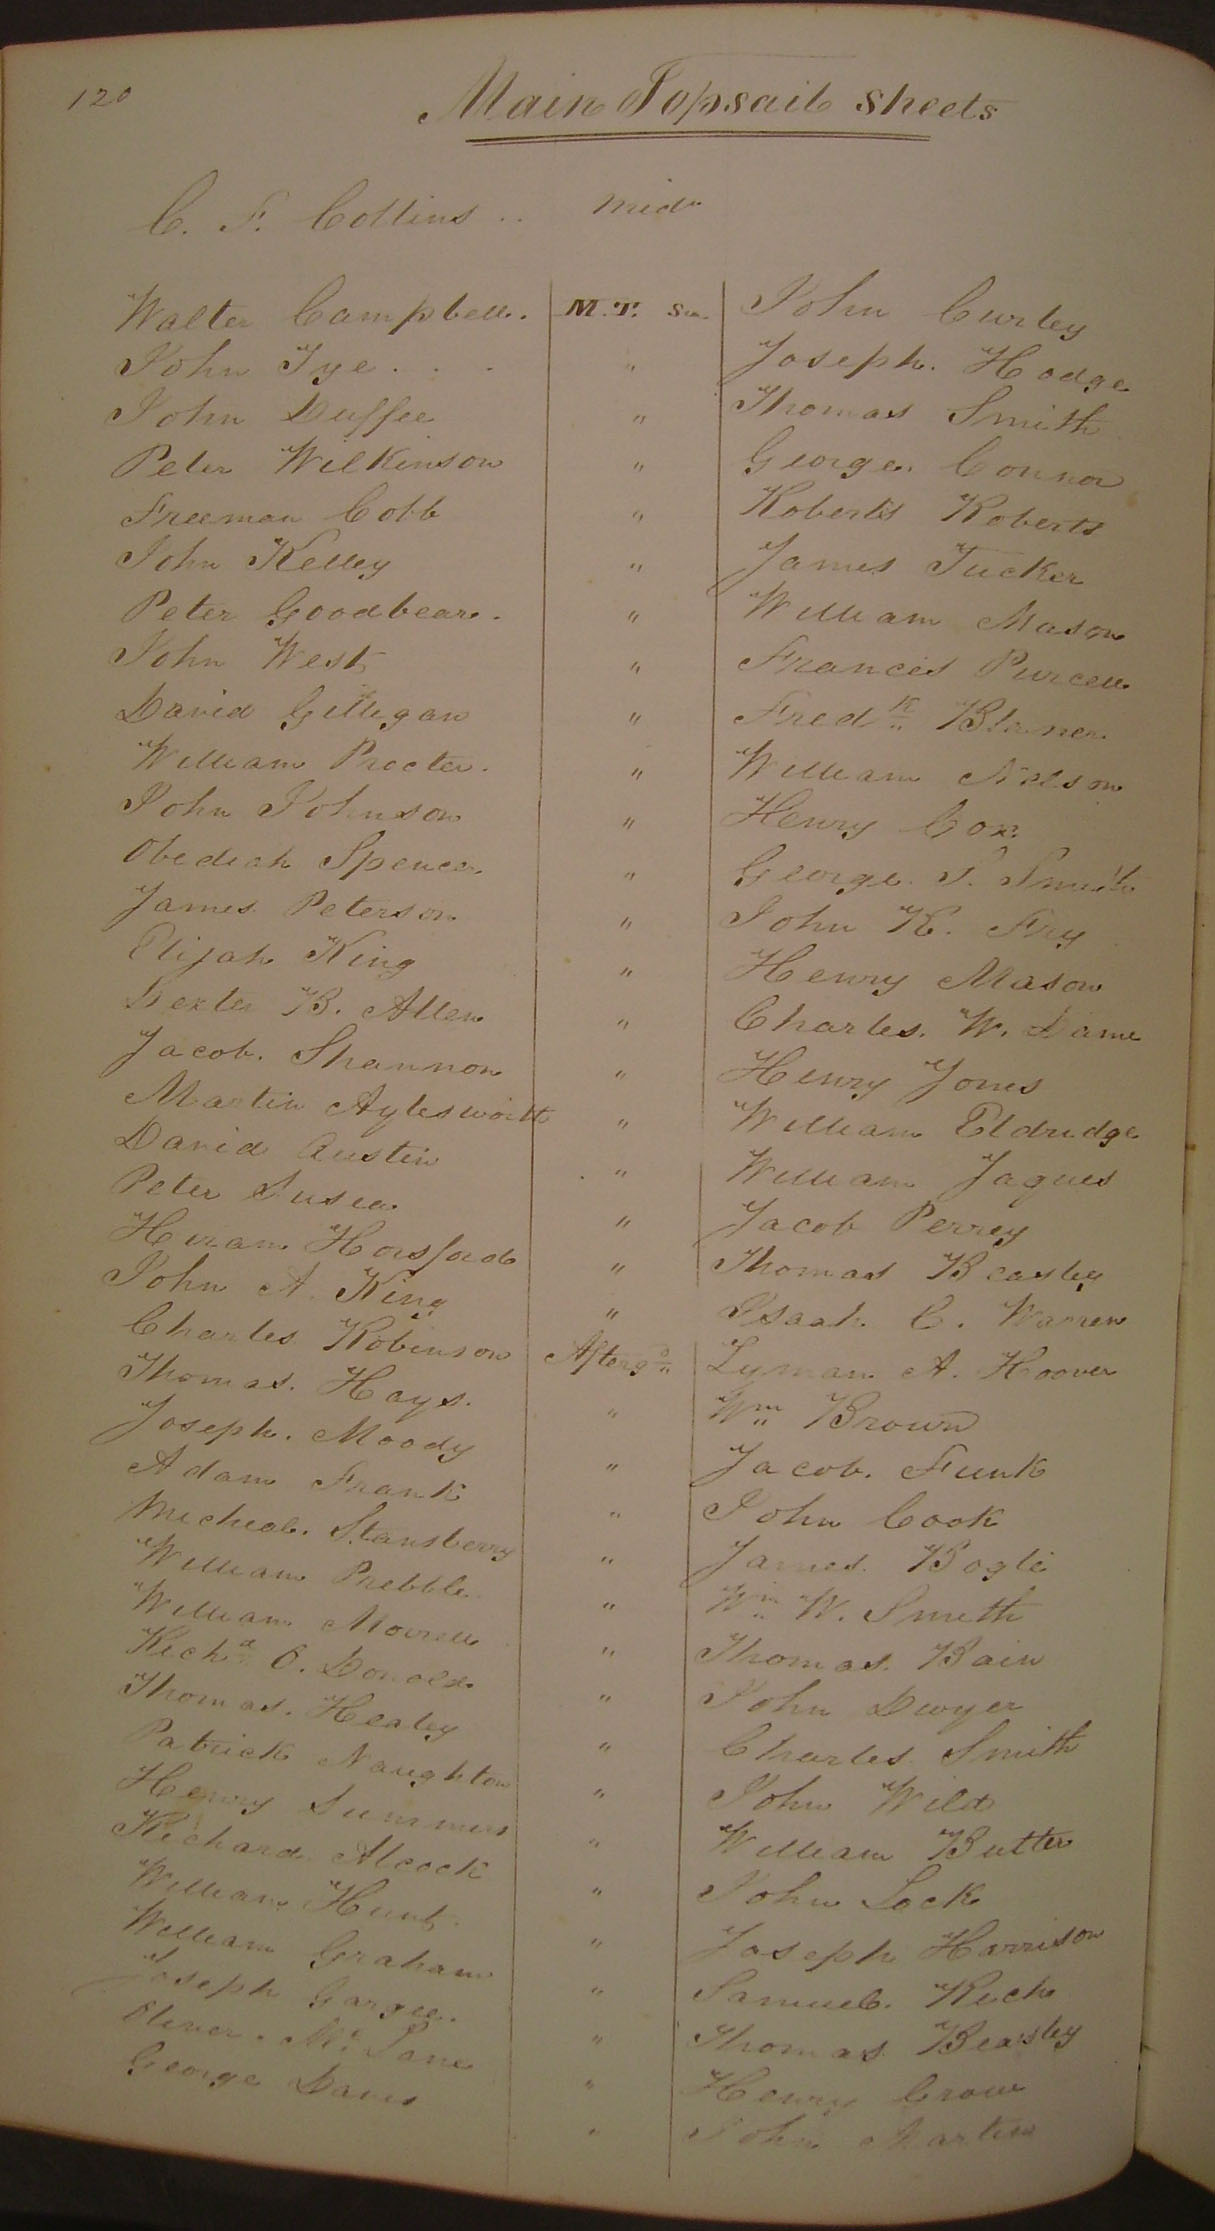 120
Main Topsail sheets
C. F. Collins .. mid.
Walter Campbell. M.T. Sn. John Curley
John Tye . . . " Joseph. Hodge
John Duffee " Thomas Smith
Peter Wilkinson " George. Connor
Freeman Cobb " Roberts Roberts
John Kelley " James Tucker
Peter Goodbear. " William Mason
John West " Francis Purcell
David Gilligan " Fredk
William Procter. " William Nelson
John Johnson " Henry Cox.
Obediah Spencer " George. S. Smith
James Peterson " John K. Fry
Elijah King " Henry Mason
Dexter B. Allen " Charles. W. Dame
Jacob. Shannon " Henry Jones
Martin Aylesworth " William Eldridge
David Austin " William Jaques
Peter " Jacob Perrey
Hiram Horsford " Thomas Beasley
John A. King " Isaah C. Warren
Charles Robinson Afterg Lyman A. Hoover
Thomas. Hays. " Wm Brown
Joseph. Moody " Jacob. Funk
Adam Frank " John Cook
Micheal. Stansberry " James. Bogle
William Prebble " Wm W. Smith
William Morrell " Thomas. Bain
Richd O. Donald " John Dwyer
Thomas. Healey " Charles Smith
Patrick Naughton " John Wild
Henry Summers " William Butter
Richard Alcock " John Lock
William Hunt. " Joseph Harrison
William Graham " Samuel. Rich
Joseph " Thomas Beasley
Oliver. Mc Lane " Henry Crow
George Davis " John Martin